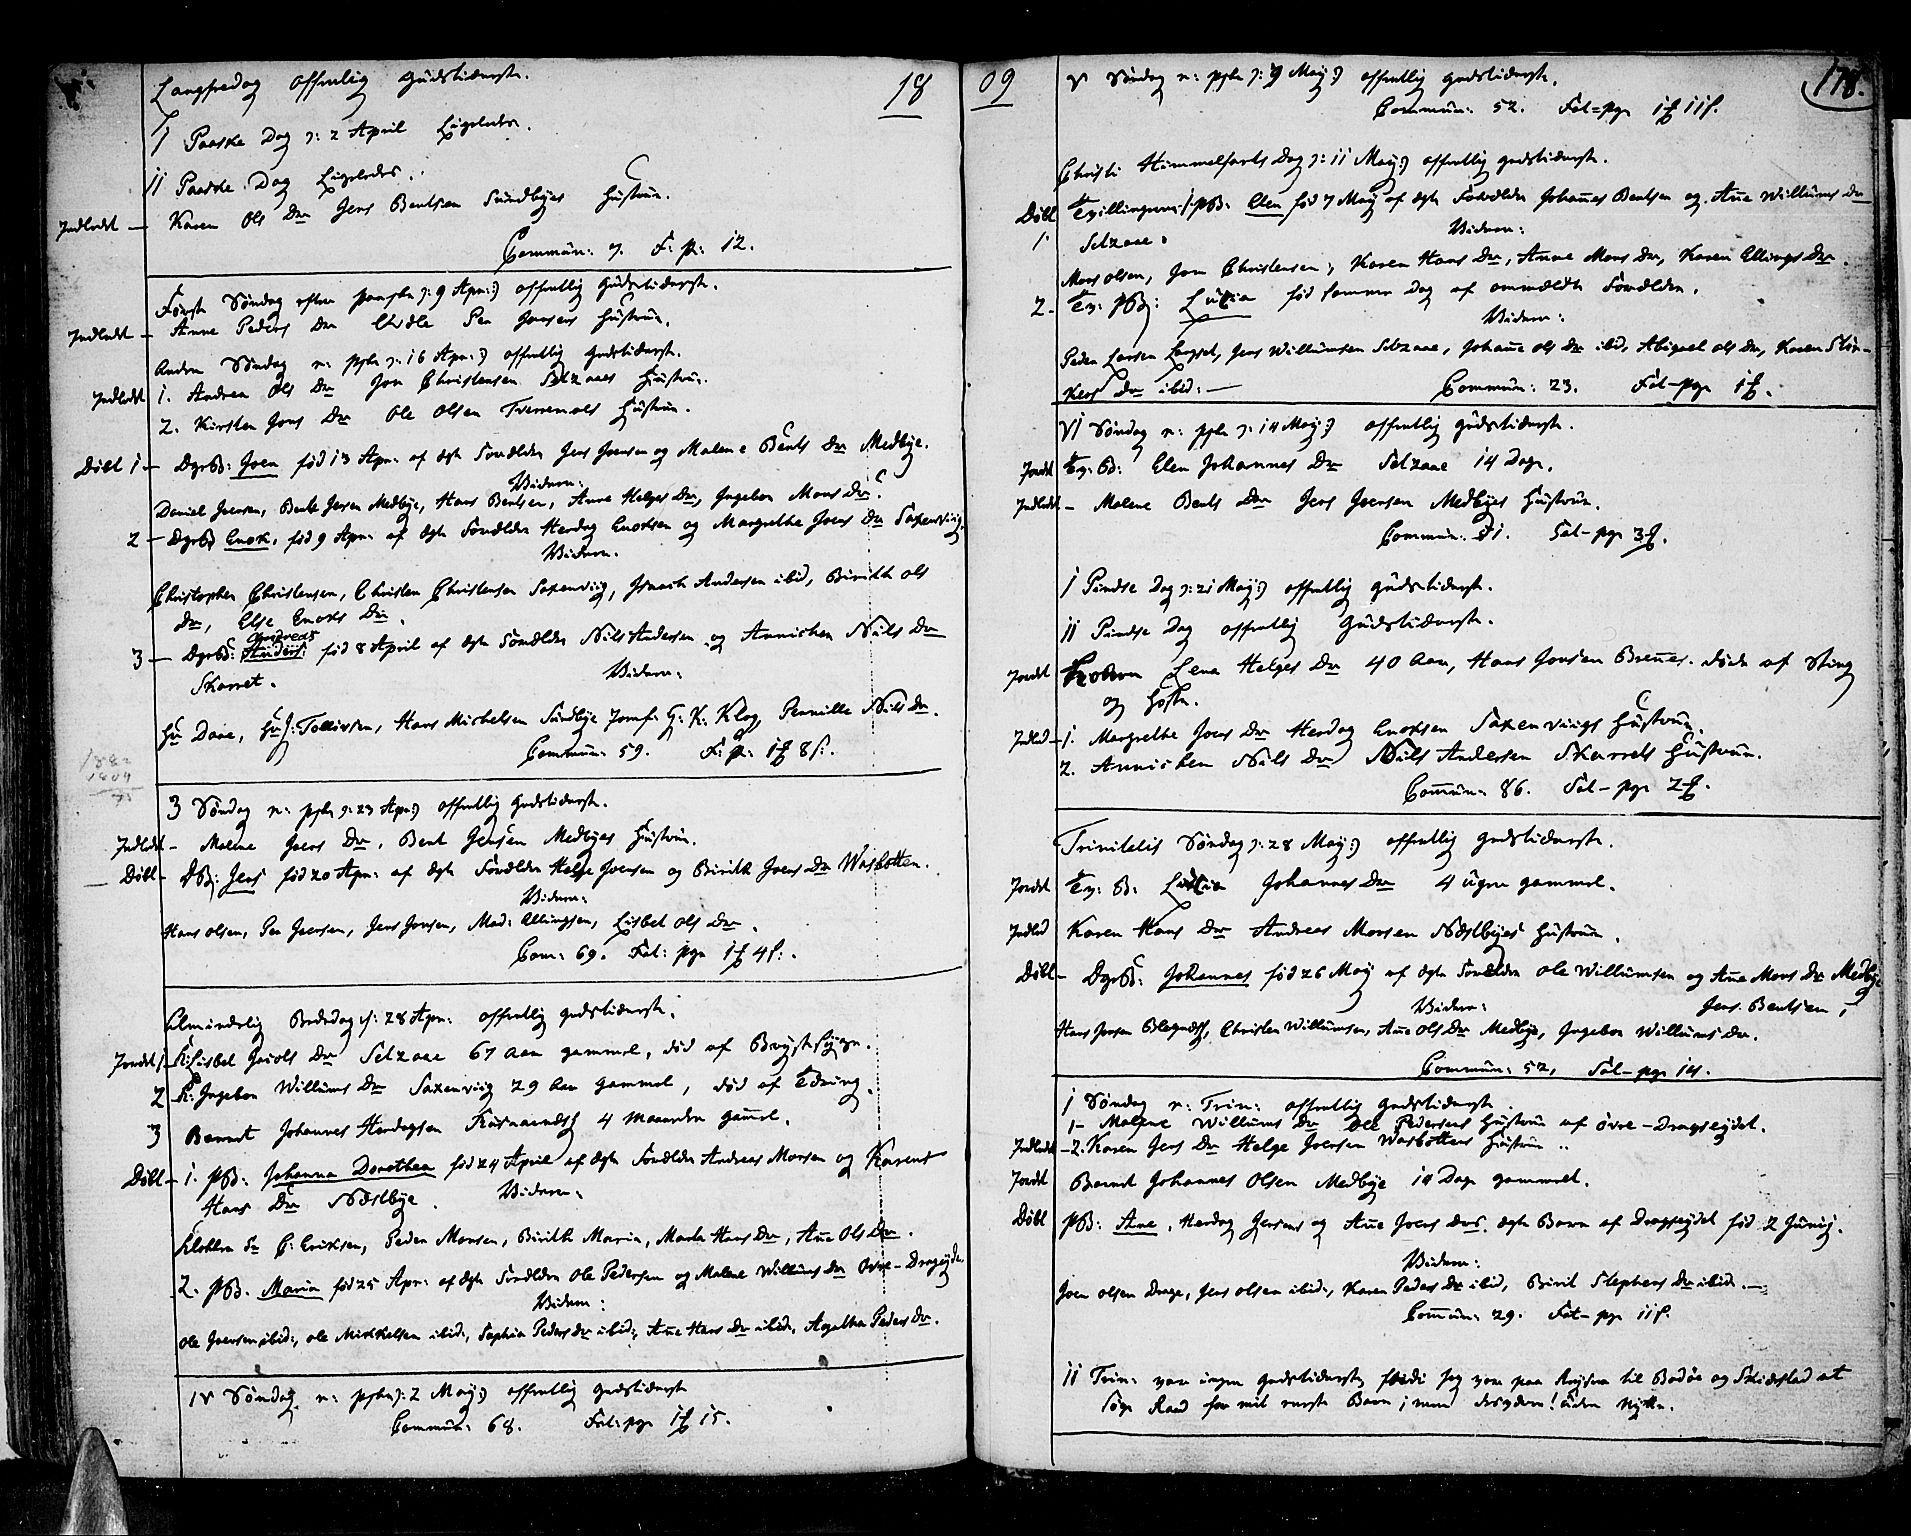 Langfredag offentlig Gudstieneste.
18
I Paaske Dag d: 2 April Ligeledes.
II Paaske Dag Ligeledes.
Indledt — Karen Ols Dr Jens Bentsen Sundbyes Hustrue.
Commun: 7. F: p: 12.
Første Søndag efter paaske d: 9 Apr:) offentlig Gudstieneste.
Indledt — Anne Peders Dr Per Joensens Hustrue.
Anden Søndag e: pske d: 16 Apr:) offentlig Gudstieneste.
Indledt 1. Andrea Ols Dr Jon Christensen Selzaaes Hustrue.
2. Kirsten Jons Dr Ole Olsen Hustrue.
Døbt 1 — DgrB: Joen fød 13 Apr: af Ægte Forældre Jens Joensen og Malene Bents Dr Medbye.
Vidne:
Daniel Joensen, Bent Jensen Medbye, Hans Bentsen, Anne Helges Dr, Ingebor Mons Dr.
2 — DgrB Enok, fød 9 Apr: af Ægte Forældre Herdag Enoksen og Margrethe Joens Dr Saxenviig
Vidne.
Christopher Christensen, Christen Christensen Saxenviig, Isaach Andersen ibid, Birith Ols
Dr, Else Enoks Dr.
3 — DgrB: Anders Andreas fød 8 April af Ægte Forældre Nils Andersen og Annichen Nils Dr
Skarret.
Vidne:
Hr Dave, Hr J: Tollivsen, Hans Michelsen Sundbye Jomf: G: K: Klog, Pernille Nils Dr.
Commun: 59. F: p: 1 8 s:
1882
1809
73
3 Søndag e: pske d: 23 Apr:) offentlig Gudstieneste.
Indledt — Malene Joens Dr, Bent Jensen Medbyes Hustrue.
Døbt — DB: Jens fød 20 Apr: af Ægte Forældre Helge Joensen og Birith Joens Dr Wasbotten.
Vidne:
Hans Olsen, Per Joensen, Jens Jonsen, Mad: Ellingsen, Lisbet Ols Dr.
Com: 69. Fat: pge 1 4 s:.
Almindelig Bededag d: 28 Apr: offentlig Gudstieneste.
Jordet 1 — K: Lisbet Jacobs Dr Selzaae 67 Aar gammel, død af Brystsyge.
2 — K: Ingebor Willums Dr Saxenviig 29 Aar gammel, død af Tæring.
3 Barnet Johannes Herdagsen 4 Maaneder gammel.
Døbt — 1. PB: Johanna Dorothea fød 24 April af Ægte Forældre Andreas Morsen og Karen
Hans Dr Næstbye.
Vidne:
Klokker Sr C: Eriksen, Peder Monsen, Birith Maria, Marta Hans Dr, Ane Ols Dr.
2. PB. Maria fød 25 Apr: af Ægte Forældre Ole Pedersen og Malene Willums Dr Øvre-Drageyde.
Vidne:
Ole Joensen ibid:, Ole Mikkelsen ibid, Sophia Peders Dr ibid:, Ane Hans Dr ibid, Agatha Peders Dr.
IV Søndag e: pske d: 2 Maij:) offentlig Gudstieneste
Commun: 68. Fat: pge 1 15.
09
178.
V Søndag e: pske d: 9 Maij:) offentlig Gudstieneste.
Commun: 52. Fat-pge 1 11 s.
Christi Himmelfarts Dag d: 11 Maij:) offentlig Gudstieneste.
Døbt 1. Tvillingerne PB: Elen fød 7 Maij af Ægte Forældre Johannes Bentsen og Ane Willums Dr
Selzaae.
Vidne:
Mons Olsen, Jon Christensen, Karen Hans Dr, Anne Mons Dr, Karen Ellings Dr.
2. Tv: PB: Lucia fød samme Dag af ommeldte Forældre.
Vidne:
Peder Larsen Langset, Jens Willumsen Selzaae, Johanne Ols Dr ibid, Abigael Ols Dr, Karen
Dr ibid: —
Commun: 23. Fat-pge 1.
VI Søndag e: pske d: 14 Maij:) offentlig Gudstieneste.
Jordet Tv: B: Elen Johannes Dr Selzaae 14 Dage.
Indledt — Malene Bents Dr Jens Joensen Medbyes Hustrue.
Commun: 31. Fat-pge 3.
I Pindse Dag d: 21 Maij:) offentlig Gudstieneste.
II Pindse Dag offentlig Gudstieneste.
Jordet Konen Lena Helges Dr 40 Aar, Hans Jonsen Brennes. døde af Sting
og Hoste.
Indled — 1. Margrethe Joens Dr Herdag Enoksen Saxenviigs Hustrue.
2. Annichen Nils Dr Nils Andersen Skarrets Hustrue.
Commun: 86. Fat-pge 2.
Trinitatis Søndag d: 28 Maij:) offentlig Gudstieneste.
Jordet Tv: B: Lucia Johannes Dr 4 uger gammel.
Indled Karen Hans Dr Andreas Morsen Næstbyes Hustrue.
Døbt — DgrB: Johannes fød 26 Maij af Ægte Forældre Ole Willumsen og Ane Mons Dr Medbye
Vidne: Jens Bentsen,
Hans Jonsen, Christen Willumsen, Ane Ols Dr Medbye, Ingebor Willums Dr.
Commun: 52, Fat-pge 14.
I Søndag e: Trin: offentlig Gudstieneste
1 — Malene Willums Dr Ole Pedersens Hustrue af Øvre-Drageydet.
Indledt — 2. Karen Jens Dr Helge Joensen Wasbottens Hustrue
Jordet Barnet Johannes Olsen Medbye 14 Dage gammel.
Døbt PB: Ane, Herdag Jensens og Ane Joens Drs Ægte Barn af Drageydet fød 2 Junij.
Vidne:
Joen Olsen Drage, Jens Olsen ibid:, Karen Peders Dr ibid, Birit Stephens Dr ibid. —
Commun: 29. Fat-pge 11 s.
II Trin: var ingen Gudstieneste fordi Jeg var paa Reysen til Bodøe og at
søge Raad for mit Barn; men desværre! uden Nytte.